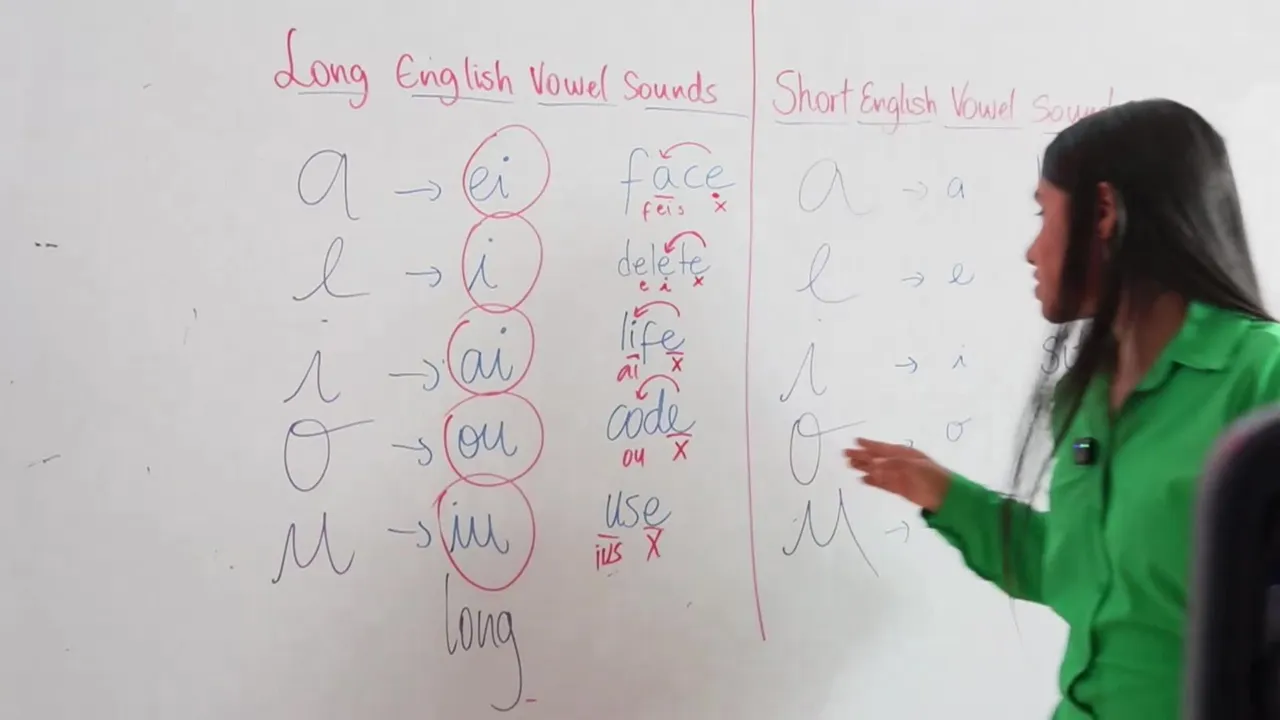 Long English Vowel Sounds
a → ei face
feis x
e → i delete
e i x
i → ai life
ai x
o → ou code
ou x
u → iu use
ius x
long
Short English Vowel
a → a
e → e
i → i
o → o
u →